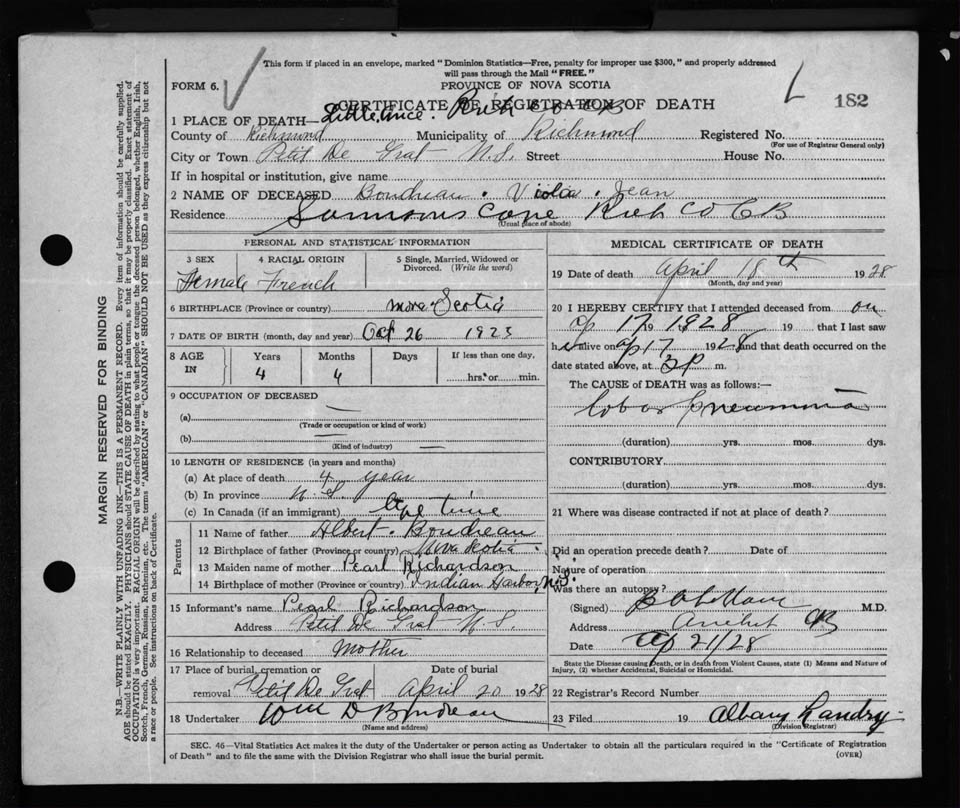 This form if placed in an envelope, marked "Dominion Statistics—Free, penalty for improper use $300," and properly addressed
will pass through the Mail "FREE."
FORM 6.
PROVINCE OF NOVA SCOTIA
182
CERTIFICATE OF REGISTRATION OF DEATH
1 PLACE OF DEATH— Little anse. Rich Co C B
County of Richmond Municipality of Richmond Registered No.
(For use of Registrar General only)
City or Town Petit De Grat N.S. Street House No.
If in hospital or institution, give name
2 NAME OF DECEASED Boudreau. Viola. Jean
Residence Samsons Cove Rich Co CB
(Usual place of abode)
PERSONAL AND STATISTICAL INFORMATION
3 SEX 4 RACIAL ORIGIN 5 Single, Married, Widowed or Divorced. (Write the word)
Female French
6 BIRTHPLACE (Province or country) Nova Scotia
7 DATE OF BIRTH (month, day and year) Oct 26 1923
8 AGE IN Years Months Days If less than one day,
4 4 hrs. or min.
9 OCCUPATION OF DECEASED
(a) —
(Trade or occupation or kind of work)
(b) —
(Kind of industry)
10 LENGTH OF RESIDENCE (in years and months)
(a) At place of death 4 year
(b) In province N.S.
(c) In Canada (if an immigrant) life time
Parents
11 Name of father Albert. Boudreau
12 Birthplace of father (Province or country) Nova Scotia
13 Maiden name of mother Pearl Richardson
14 Birthplace of mother (Province or country) Indian Harbor, N.S.
15 Informant's name Pearl Richardson
Address Petit De Grat N.S.
16 Relationship to deceased Mother
17 Place of burial, cremation or removal Petit De Grat Date of burial April 20 1928
18 Undertaker Wm D Boudreau
(Name and address)
MEDICAL CERTIFICATE OF DEATH
19 Date of death April 18th 1928
(Month, day and year)
20 I HEREBY CERTIFY that I attended deceased from on
Ap 17 19 1928 19 that I last saw
her alive on Ap 17 1928 and that death occurred on the
date stated above, at 3 P m.
The CAUSE of DEATH was as follows:—
Lobar Pneumonia
(duration) yrs. mos. dys.
CONTRIBUTORY.
(duration) yrs. mos. dys.
21 Where was disease contracted if not at place of death?
Did an operation precede death? Date of
Nature of operation
Was there an autopsy?
(Signed) M.D.
Address Arichat CB
Date Ap 21/28
State the Disease causing Death, or in death from Violent Causes, state (1) Means and Nature of
Injury, (2) whether Accidental, Suicidal or Homicidal.
22 Registrar's Record Number
23 Filed 19 Albany Landry
(Division Registrar)
SEC. 46—Vital Statistics Act makes it the duty of the Undertaker or person acting as Undertaker to obtain all the particulars required in the "Certificate of Registration
of Death" and to file the same with the Division Registrar who shall issue the burial permit.
(OVER)
MARGIN RESERVED FOR BINDING
N.B.—WRITE PLAINLY WITH UNFADING INK—THIS IS A PERMANENT RECORD. Every item of information should be carefully supplied.
AGE should be stated EXACTLY. PHYSICIANS should STATE CAUSE OF DEATH in plain terms, so that it may be properly classified. Exact statement of
OCCUPATION is very important. RACIAL ORIGIN will be described by stating to what people or tongue the deceased person belonged, whether English, Irish,
Scotch, French, German, Russian, Ruthenian, etc. The terms "AMERICAN" or "CANADIAN" SHOULD NOT BE USED as they express citizenship but not
a race or people. See instructions on back of Certificate.